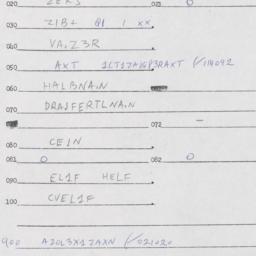 020 ZERS 023 0
030 ZIB+ QI 1 XX
040 VA.Z3R
050 AXT 1LT17AKGP3RAXT /114092
060 HALBNA.N
070 DRAIFERTLNA.N
072 -
080 CE1N
081 0 082 0
090 EL1F HELF
100 CVEL1F
900 A2OL3X1JAXN /021020